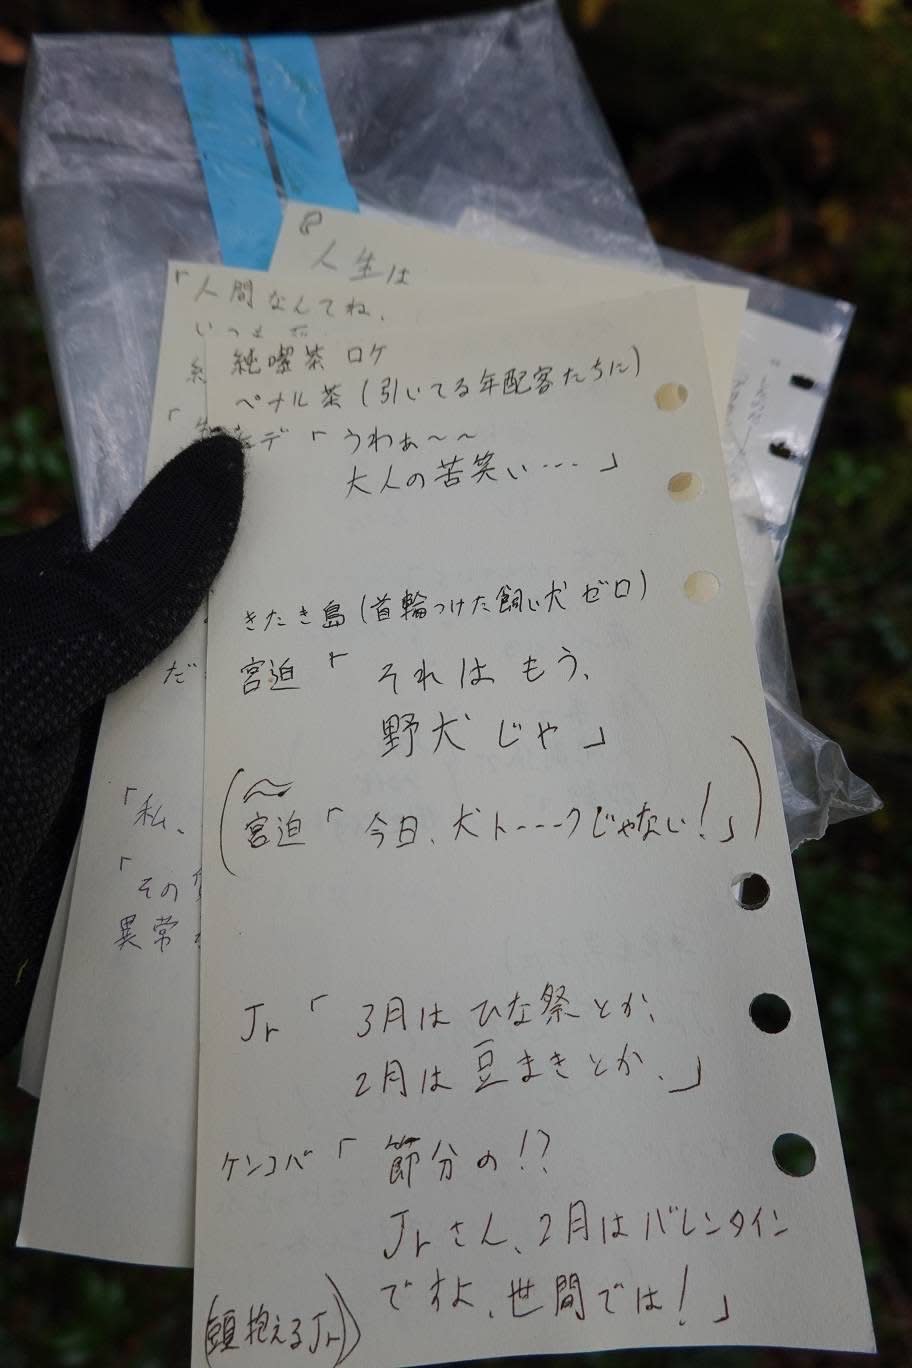 人生は
「人間なんてね、
純喫茶 ロケ
ペナル茶(引いてる年配客たちに)
デ「うわぁ〜〜
大人の苦笑い…」
きたき島(首輪つけた飼い犬 ゼロ)
宮迫「それは もう、
野犬じゃ」
(宮迫「今日、犬トーークじゃない!」)
Jr「3月は ひな祭とか、
2月は 豆まきとか、」
ケンコバ「節分の!?
Jrさん、2月はバレンタイン
ですよ、世間では!」
(頭抱えるJr)
だ
「私、
「その
異常